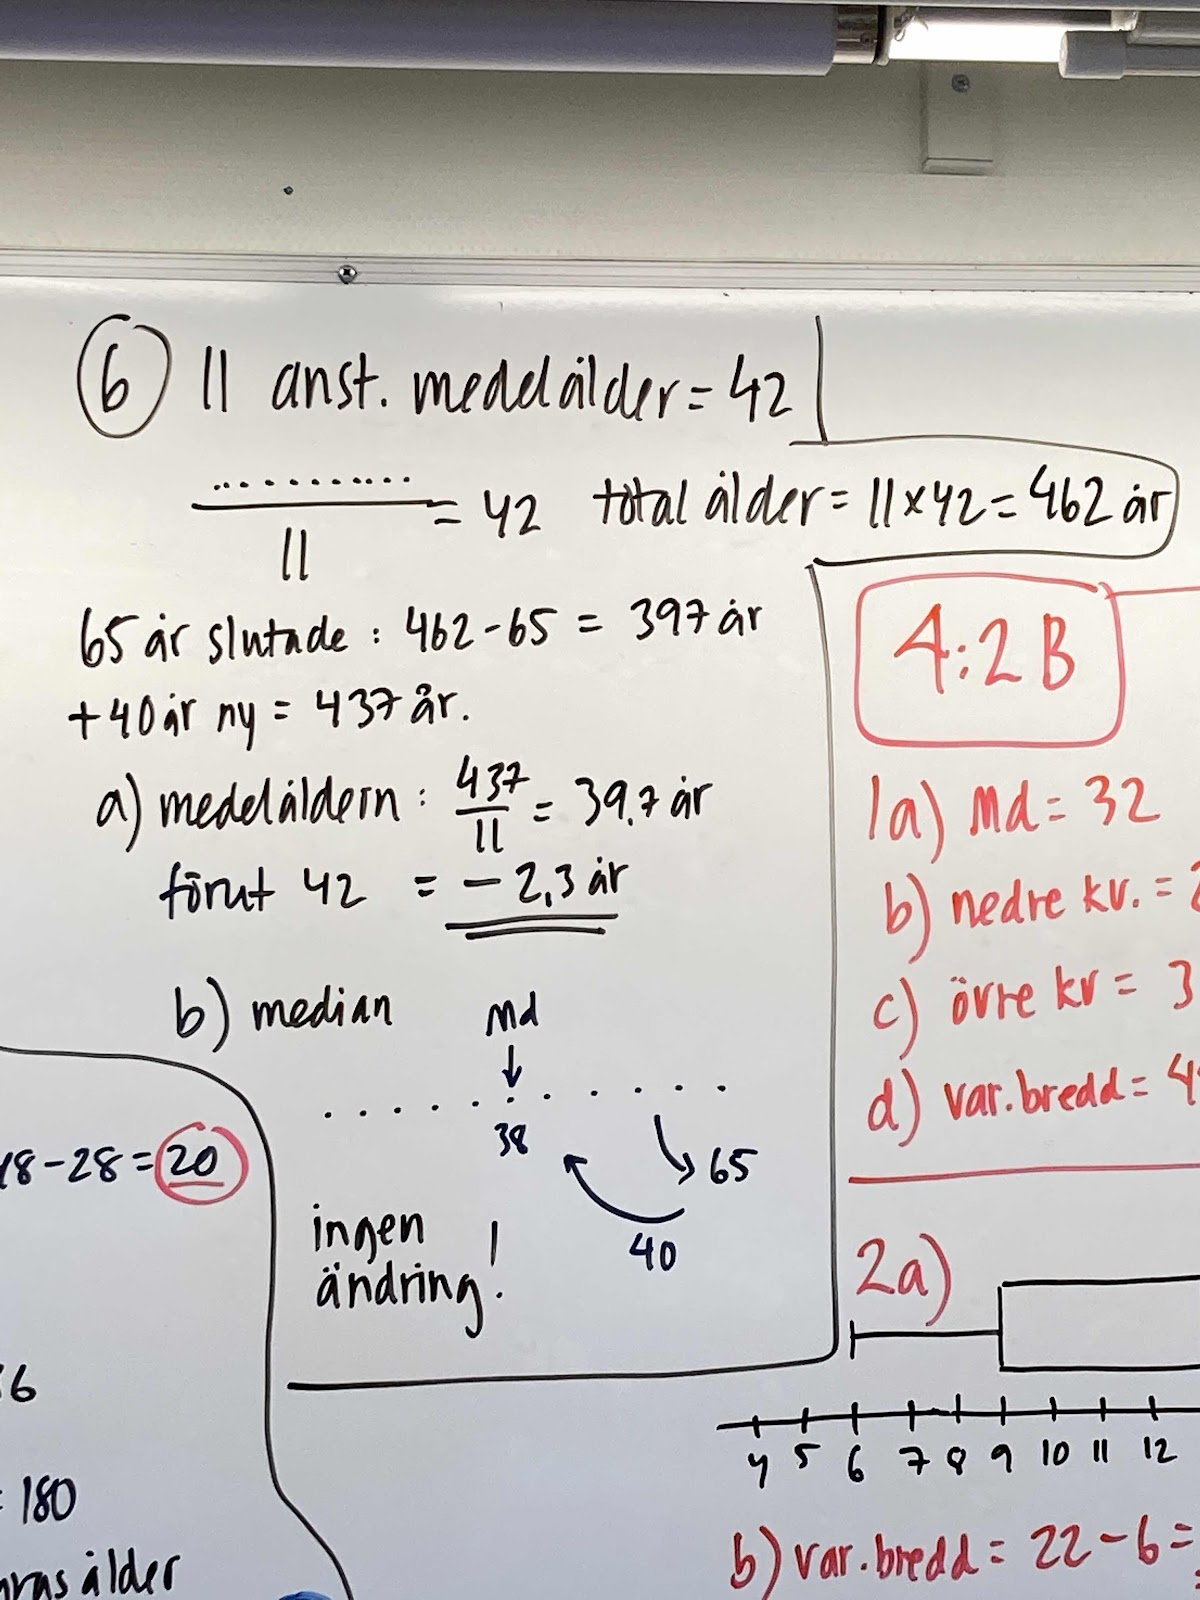 6 11 anst. medelålder = 42
.......... = 42 total ålder = 11 x 42 = 462 år
11
65 år slutade : 462 - 65 = 397 år
+ 40 år ny = 437 år.
a) medelåldern : 437 = 39,7 år
11
förut 42 = - 2,3 år
b) median Md
38
65
40
ingen
ändring!
18 - 28 = 20
= 180
ålder
4:2 B
1a) Md = 32
b) nedre kv. = 2
c) övre kv = 3
d) var.bredd = 4
2a)
4 5 6 7 8 9 10 11 12
b) var.bredd = 22 - 6 =